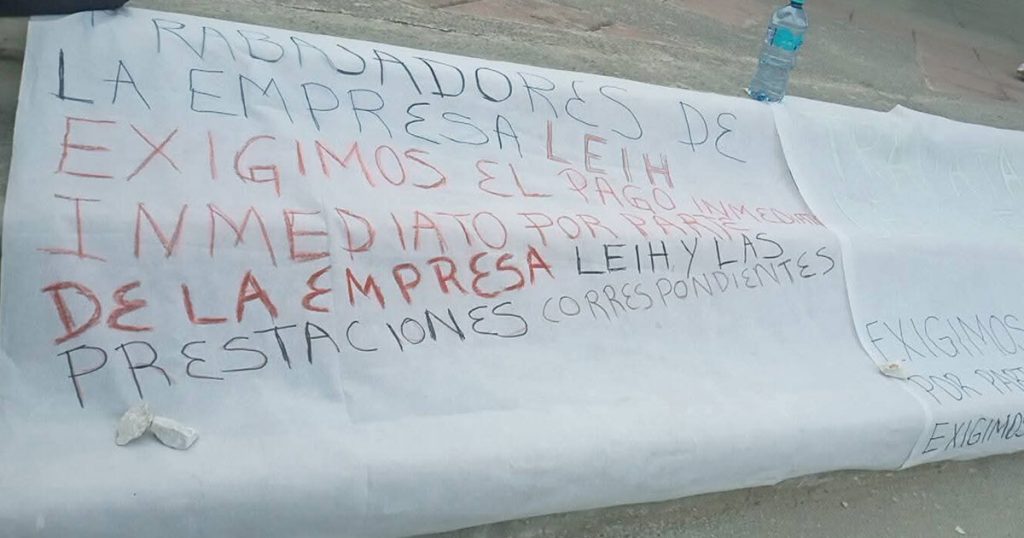 TRABAJADORES DE
LA EMPRESA LEIH
EXIGIMOS EL PAGO INMEDIATO
INMEDIATO POR PARTE
DE LA EMPRESA LEIH Y LAS
PRESTACIONES CORRESPONDIENTES
EXIGIMOS
POR PART
EXIGIMOS